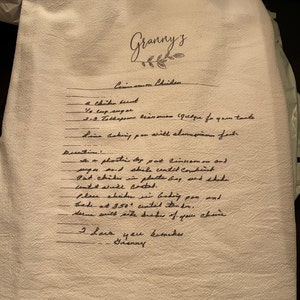 Granny's
Cinnamon Chicken
4 chicken breast
1/2 cup sugar
2-3 Tablespoons cinnamon (Judge for your taste
Line baking pan with aluminum foil
Directions:
In a plastic bag put cinnamon and
sugar and shake until combined
Put chicken in plastic bag and shake
until well coated.
Place chicken in baking pan and
bake at 350° until tender.
Serve with side dishes of your choice
I love you
Granny